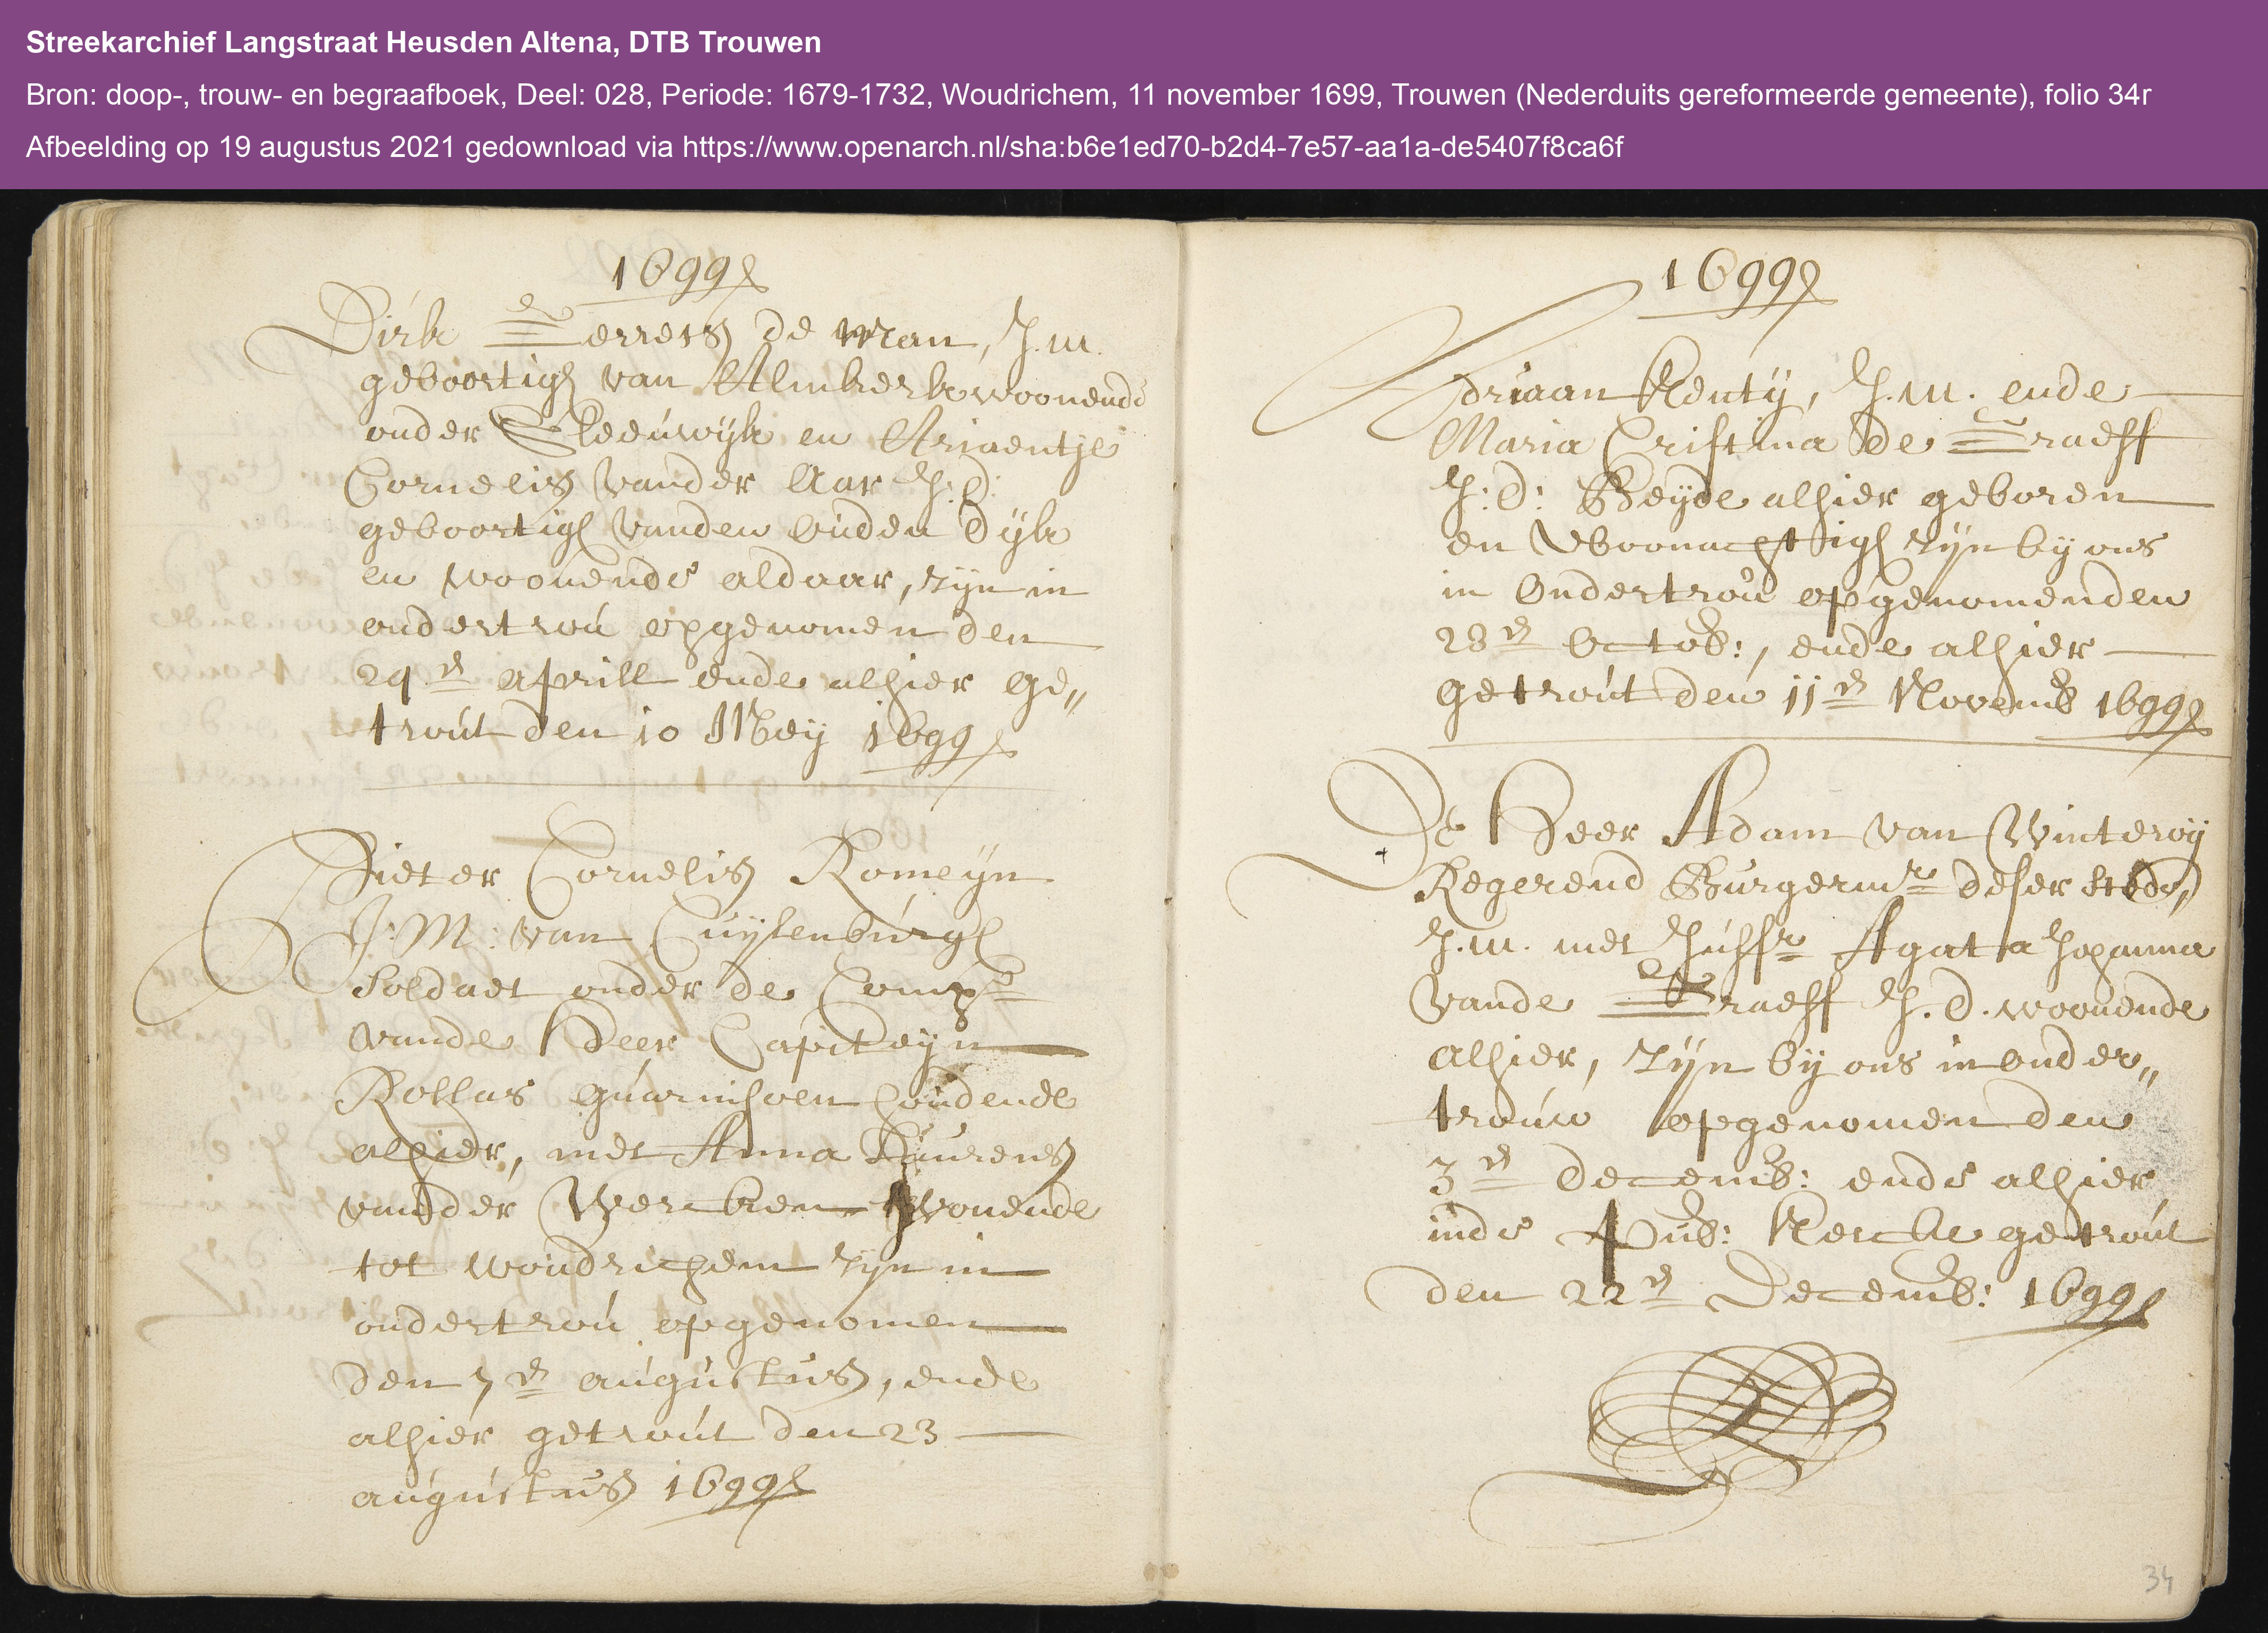 Streekarchief Langstraat Heusden Altena, DTB Trouwen
Bron: doop-, trouw- en begraafboek, Deel: 028, Periode: 1679-1732, Woudrichem, 11 november 1699, Trouwen (Nederduits gereformeerde gemeente), folio 34r
Afbeelding op 19 augustus 2021 gedownload via https://www.openarch.nl/sha:b6e1ed70-b2d4-7e57-aa1a-de5407f8ca6f
1699
Dirk Gerrets de Man, J.m.
geboortigh van Almkerk woonende
onder Sleeuwijk en Ariaentje
Cornelis vander Aar J:d:
geboortigh vanden Ouden Dijk
en woonende aldaar, zijn in
ondertrou opgenomen den
29en aprill ende alhier ge„
trout den 10 Meij 1699
Pieter Cornelis Romeijn
J:M: van Cuijlenburgh
Soldaet onder de Compe
vande Heer Capiteijn
guarnisoen houdende
alhier, met Anna Laurens
vander Wercken woonende
tot Woudrichem zijn in
ondertrou opgenomen
den 7en augustus, ende
alhier getrout den 23
augustus 1699
1699
Adriaan Kentij, J.m. ende
Maria Cristina de Graeff
J:d: Beijde alhier geboren
en woonachtigh zijn bij ons
in Ondertrou opgenomen den
28en Octob:, ende alhier
getrout den 11en Novemb 1699
De Heer Adam van Winteroij
Regerend Burgermr deser stede,
J.m. met Juffr Agata Johanna
vande Graeff J.d. woonende
alhier, zijn bij ons in onder„
trouw opgenomen den
3en decemb: ende alhier
inde Pub: Kercke getrout
den 22en Decemb: 1699
34